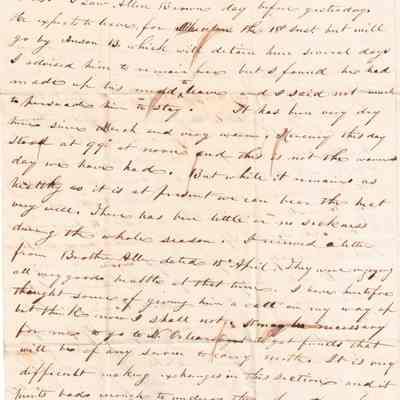 I saw Allen Brown day before yesterday
He expects to leave for the 18 Inst but will
go by which will detain him several days
I advised him to remain here but I found he had
made up his mind to leave and I said not much
to persuade him to stay. It has been very dry
here since March and very warm, Mercury this day
stood at 99° at noon and this is not the warmest
day we have had. But while it remains as
healthy as it is at present we can bear the heat
very well. There has been little or no sickness
during the whole season. I received a letter
from Brother dated 15 April, They were enjoying
all very good health at that time. I have heretofore
thought some of giving him a call on my way up
but think now I shall not, It may be necessary
for me to go to N. Orleans to get funds that
will be of any service to carry north. It is very
difficult making exchanges in this section and it